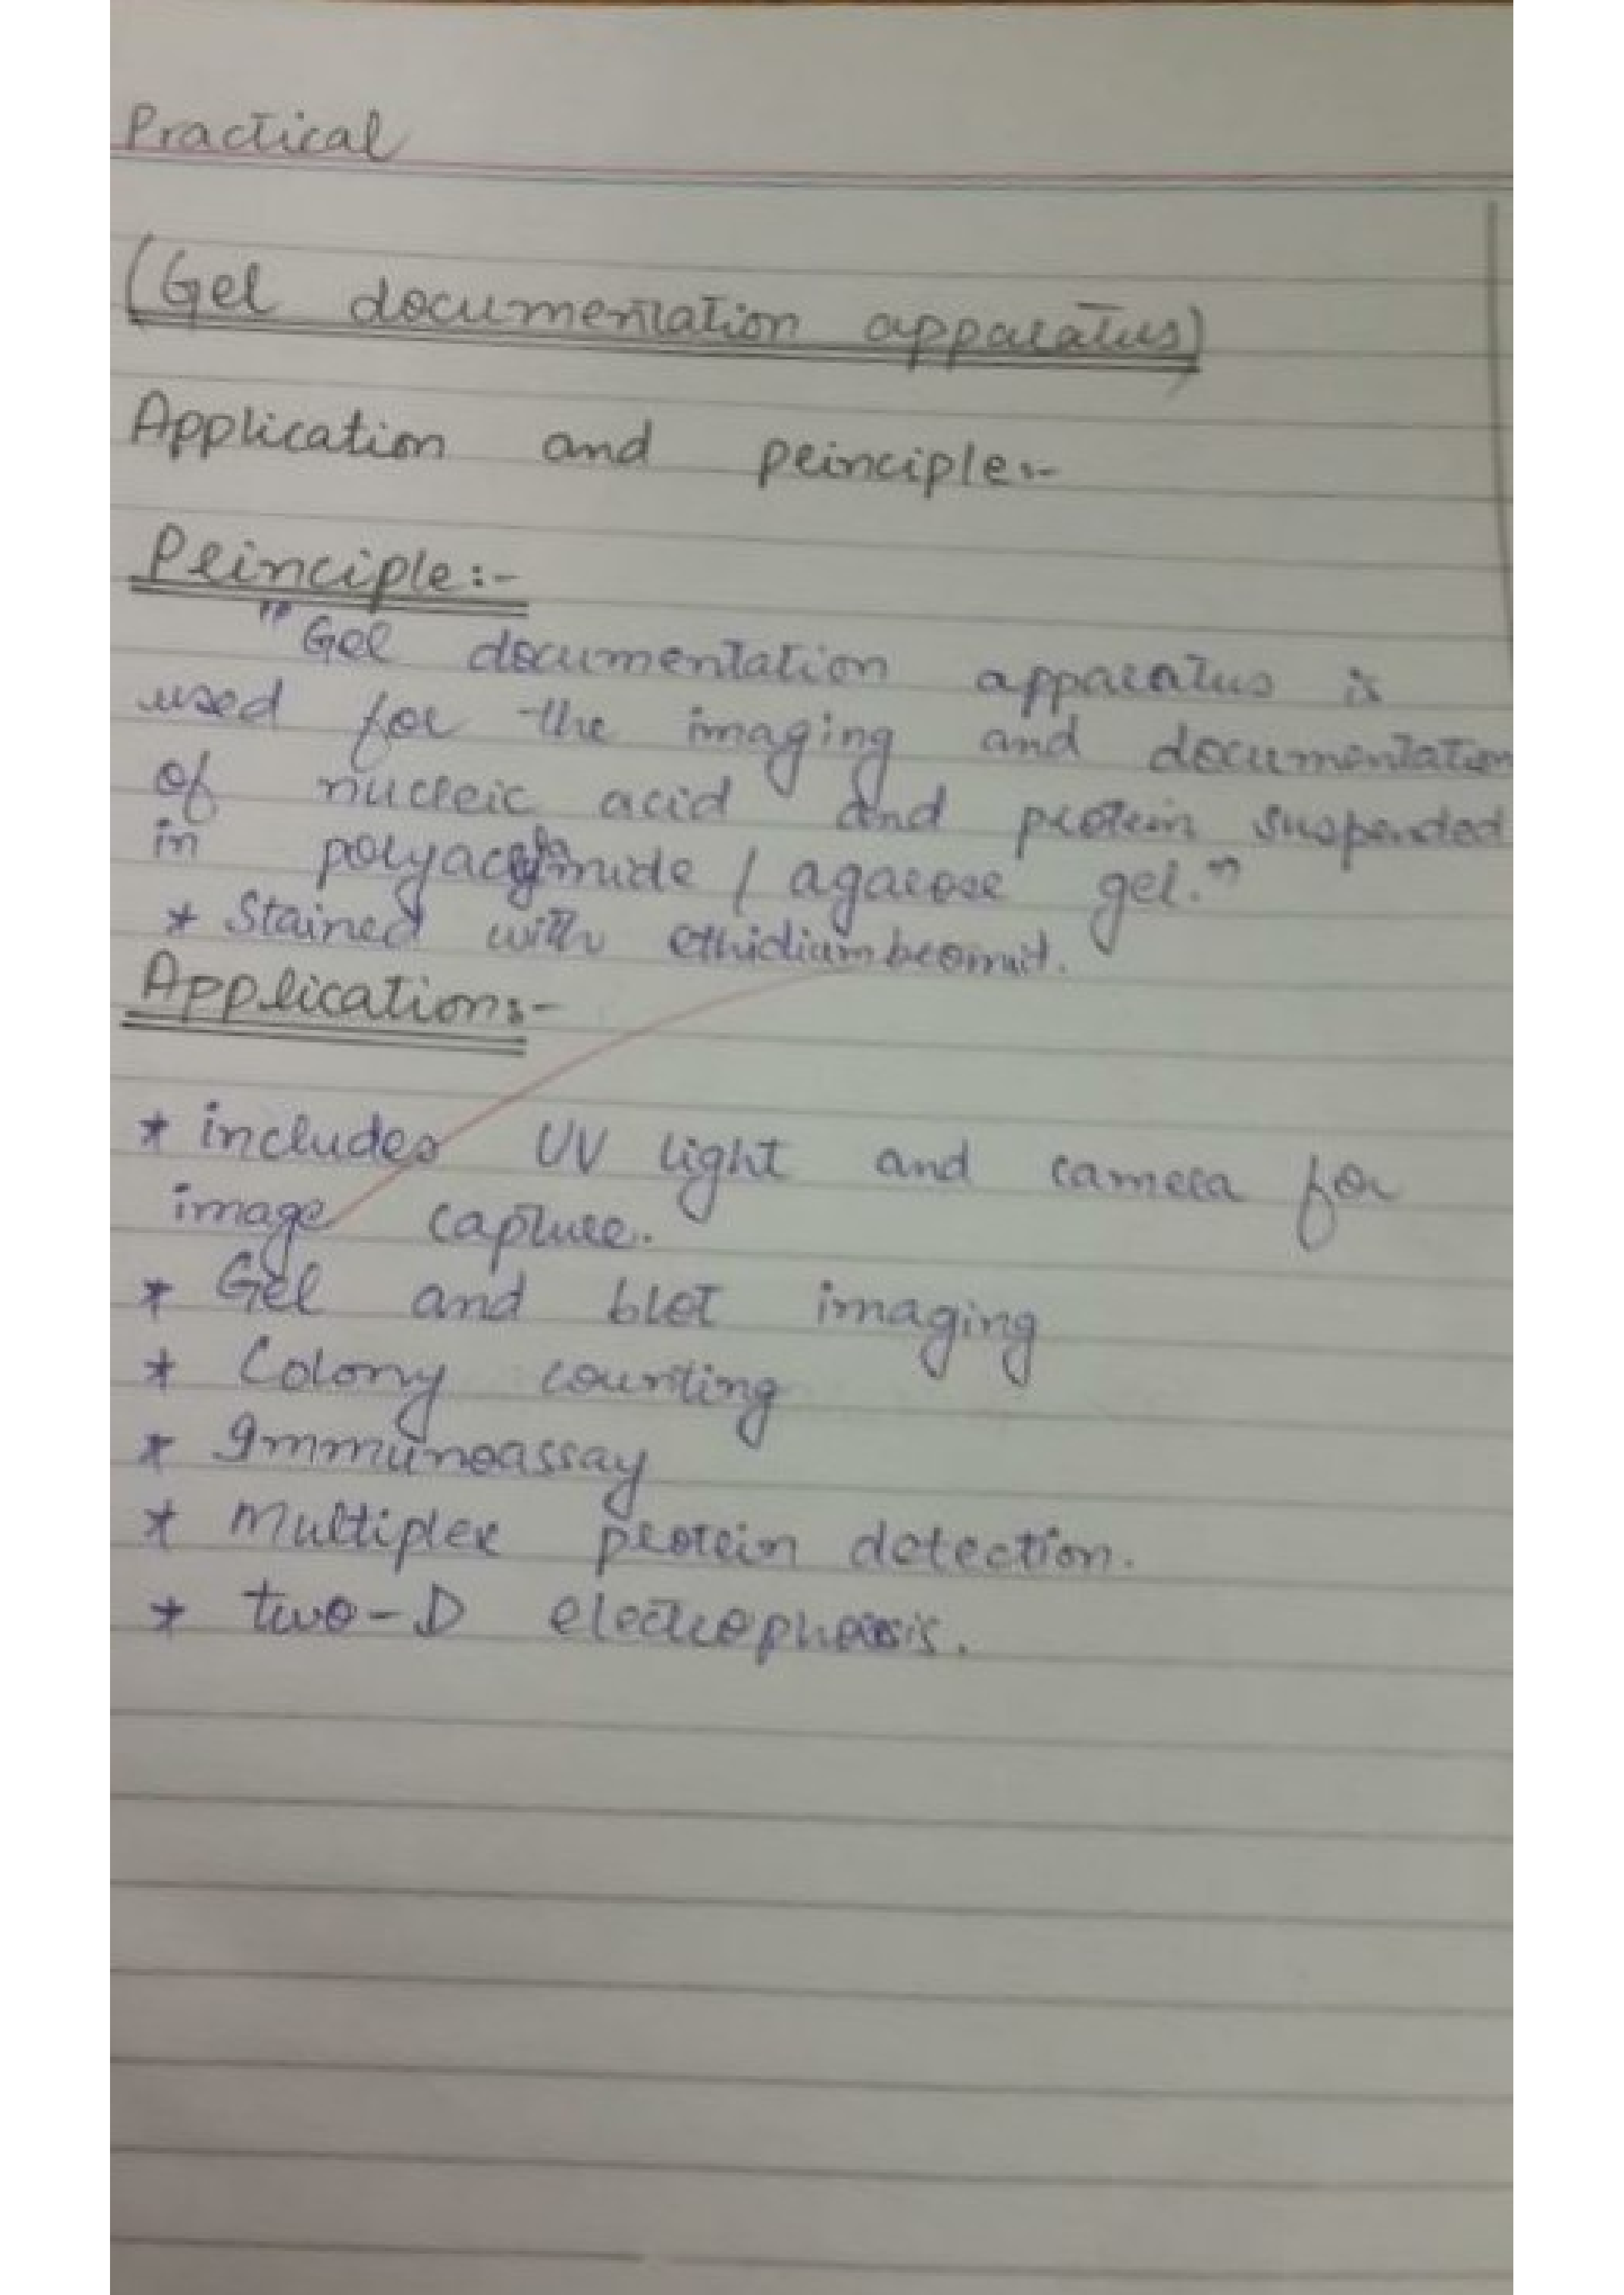 Practical
(Gel documentation apparatus)
Application and principle:-
Principle:-
"Gel documentation apparatus is
used for the imaging and documentation
of nucleic acid and protein suspended
in polyacrylamide / agarose gel."
* Stained with ethidium bromit.
Applications:-
* includes UV light and camera for
image capture.
* Gel and blot imaging
* Colony counting
* Immunoassay
* Multiplex protein detection.
* two-D